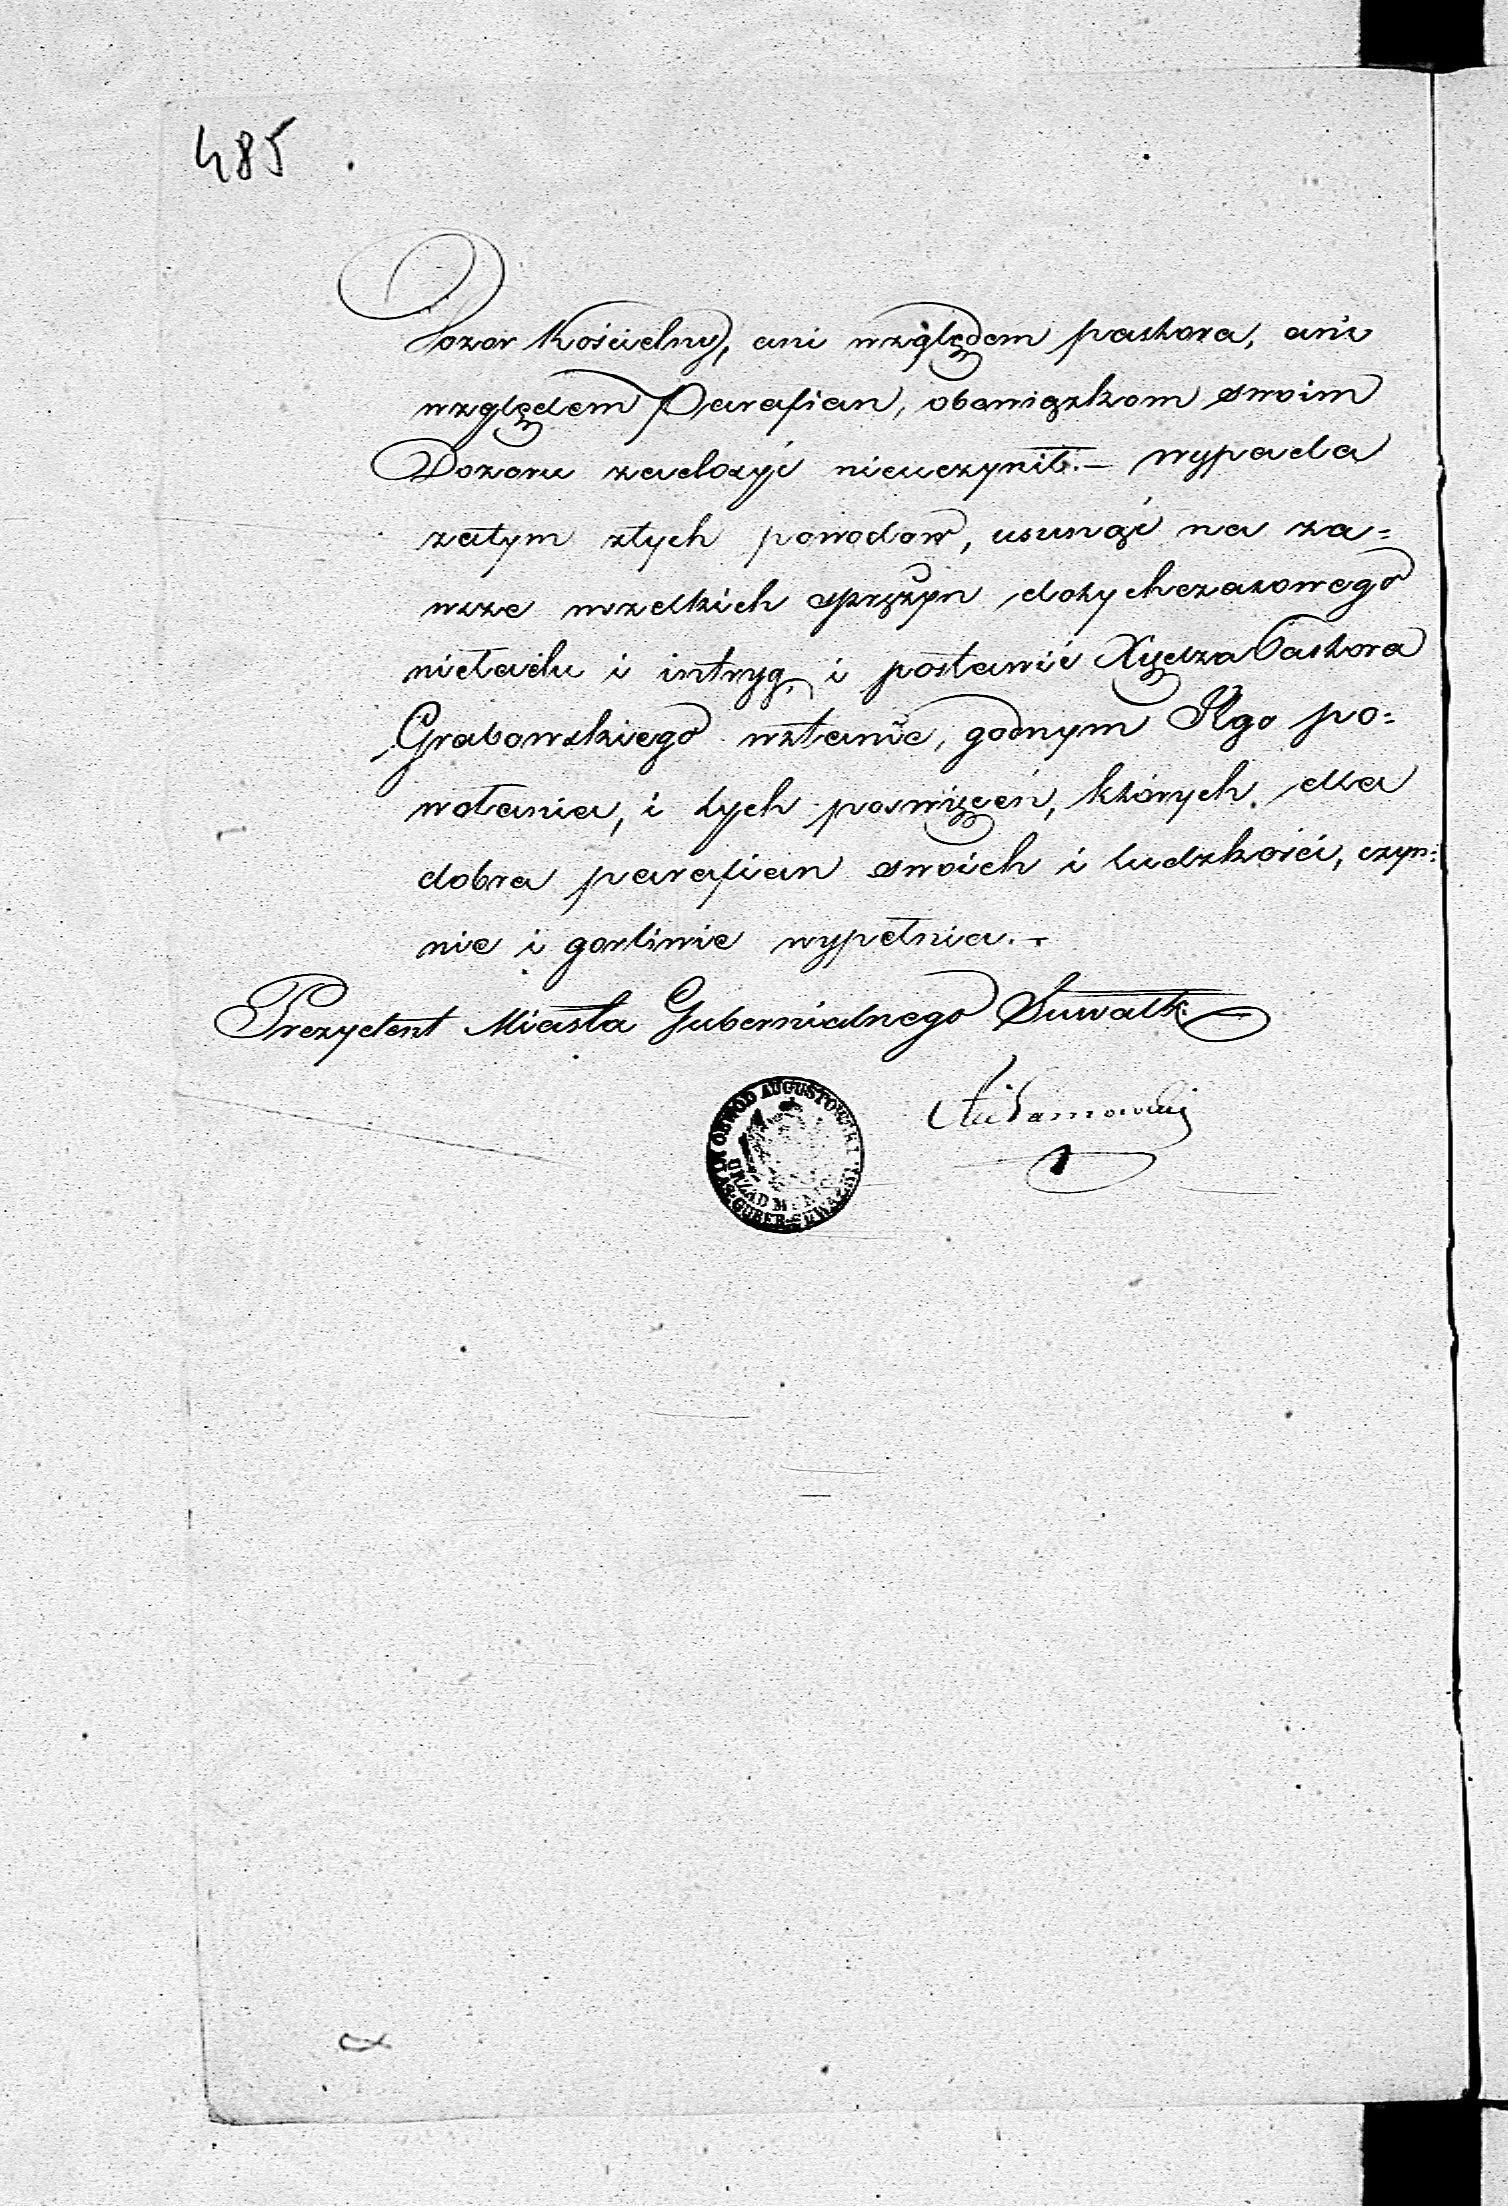 485
Dozór Kościelny, ani względem pastora, ani
względem Parafian, obowiązkom swoim
Dozoru zadosyć nieuczynił. — wypada
zatym złych powodów, usunąć na za=
wsze wszelkich sprężyn dotychczasowego
nieładu i intryg, i postawić Xiędza Pastora
Grabowskiego wstanie, godnym Jego po=
wołania, i tych poświęceń, których dla
dobra parafian swoich i ludzkości, czyn=
nie i gorliwie wypełnia. —
Prezydent Miasta Gubernialnego Suwałk.
OBWÓD AUGUSTOWSKI
URZĄD